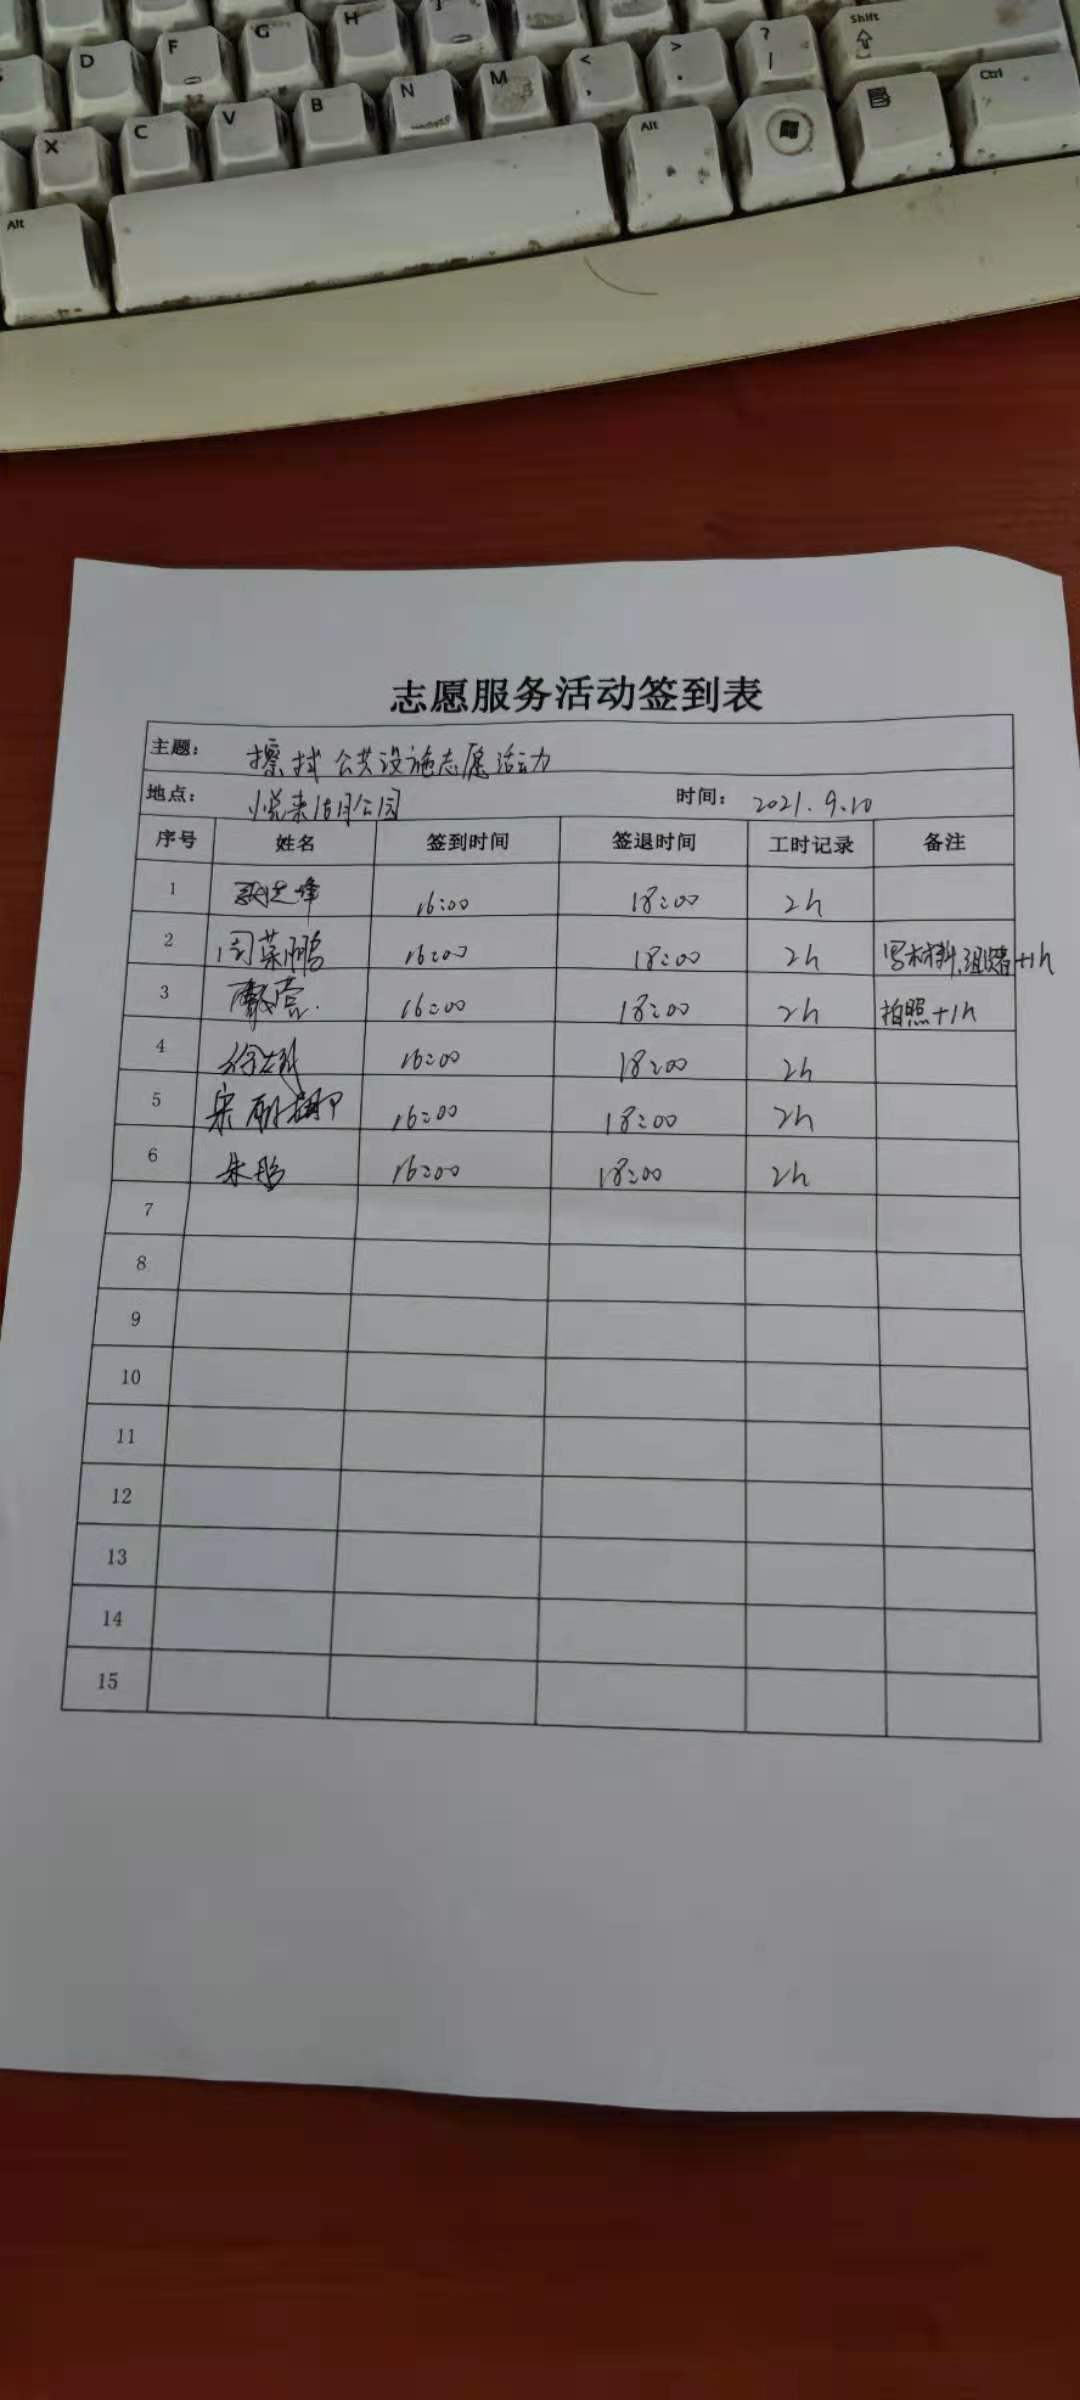 H
D F G
Shift
X C V B N M < , > . ? /
Alt Alt Ctrl
志愿服务活动签到表
主题： 擦拭公共设施志愿活动
地点： 悦来湖公园 时间： 2021.9.10
序号 姓名 签到时间 签退时间 工时记录 备注
1 16:00 18:00 2h
2 周荣鹏 16:00 18:00 2h 写材料、组织者+1h
3 16:00 18:00 2h 拍照+1h
4 16:00 18:00 2h
5 宋 16:00 18:00 2h
6 朱彤 16:00 18:00 2h
7
8
9
10
11
12
13
14
15